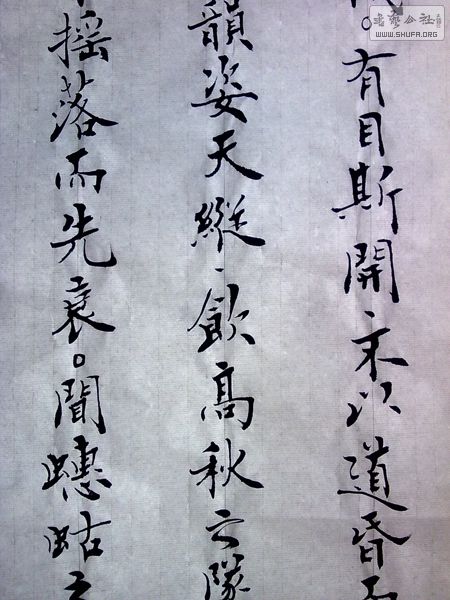 。有目斯開、不以道昏而
韻姿天縱、飲高秋之
搖落而先衰。聞蟪蛄之
書藝公社
WWW.SHUFA.ORG